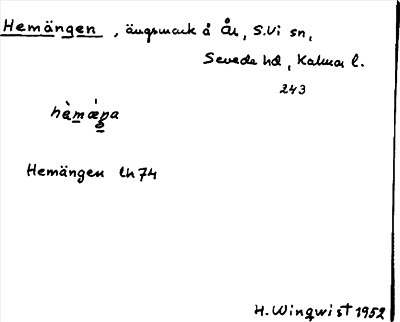 Hemängen, ängsmark å År, S.Vi sn,
Sevede hd, Kalmar l.
243
hèmæ̀ŋa
Hemängen lh 74
H. Winqwist 1952